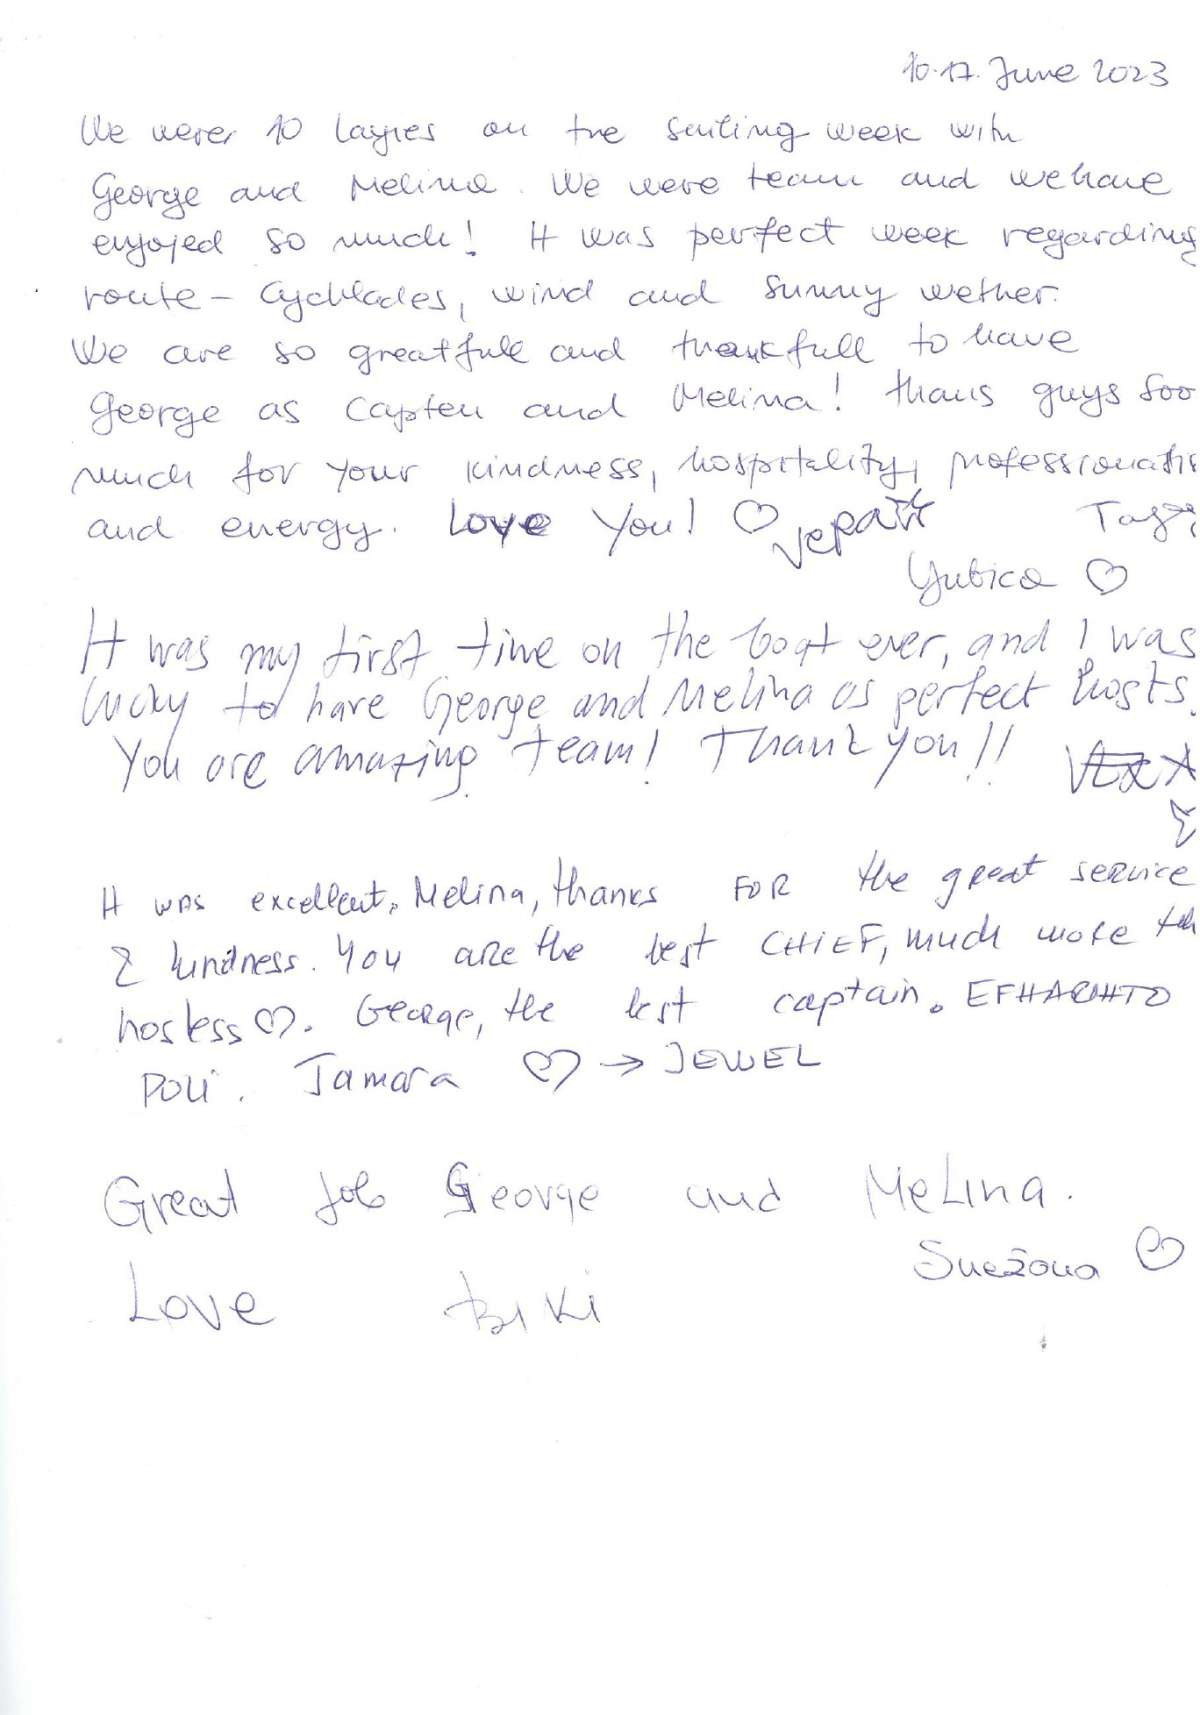 10.-17. June 2023
We were 10 Layies on the sailing week with
George and Melina. We were team and we have
enjoyed so much! It was perfect week regarding
route - Cycklades, wind and sunny wether.
We are so greatfull and thankfull to have
George as Capten and Melina! Thans guys soo
much for your kindness, hospitality, professionalis
and energy. Love You! ♡
Yubica ♡
It was my first time on the boat ever, and I was
lucky to have George and Melina as perfect hosts.
You are amazing team! Thank you!!
It was excellent, Melina, thanks FOR the great service
& kindness. You are the best CHIEF, much more
hostess ♡. George, the best captain. EFHARIHTO
POLI. Tamara ♡ → JEWEL
Great job George and Melina.
Snežana ♡
Love Biki